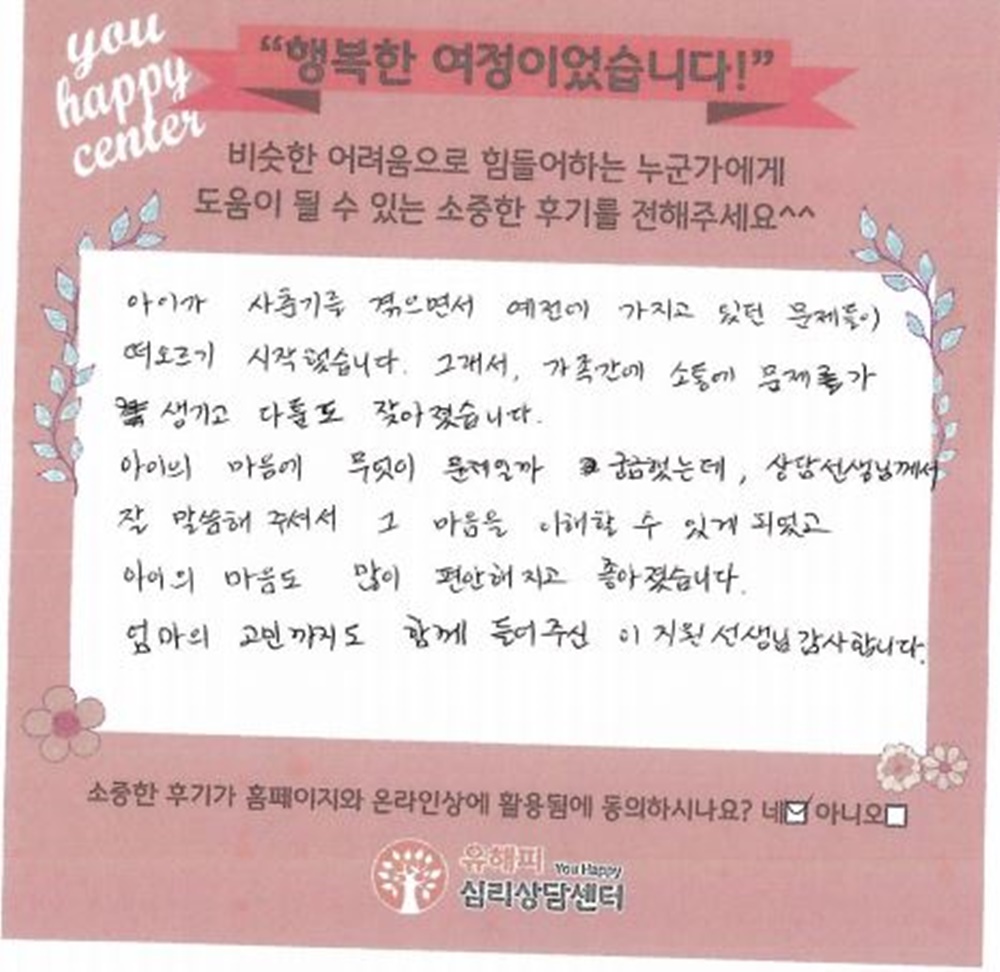 you
happy
center
“행복한 여정이었습니다!”
비슷한 어려움으로 힘들어하는 누군가에게
도움이 될 수 있는 소중한 후기를 전해주세요^^
아이가 사춘기를 겪으면서 예전에 가지고 있던 문제들이
떠오르기 시작했습니다. 그래서, 가족간에 소통에 문제가
생기고 다툼도 잦아졌습니다.
아이의 마음에 무엇이 문제일까 궁금했는데, 상담선생님께서
잘 말씀해 주셔서 그 마음을 이해할 수 있게 되었고
아이의 마음도 많이 편안해지고 좋아졌습니다.
엄마의 고민까지도 함께 들어주신 이지원 선생님 감사합니다.
소중한 후기가 홈페이지와 온라인상에 활용됨에 동의하시나요? 네☑ 아니오☐
유해피 You Happy
심리상담센터